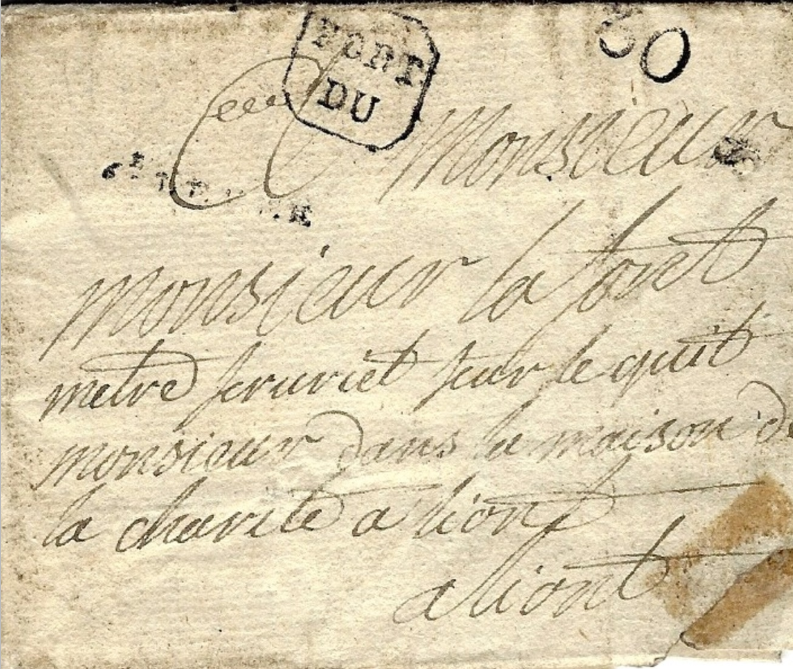 PORT
DU
30
Monsieur
monsieur la font
metre seruriet sur le quit
monsieur dans la maison de
la charite a liont
a liont